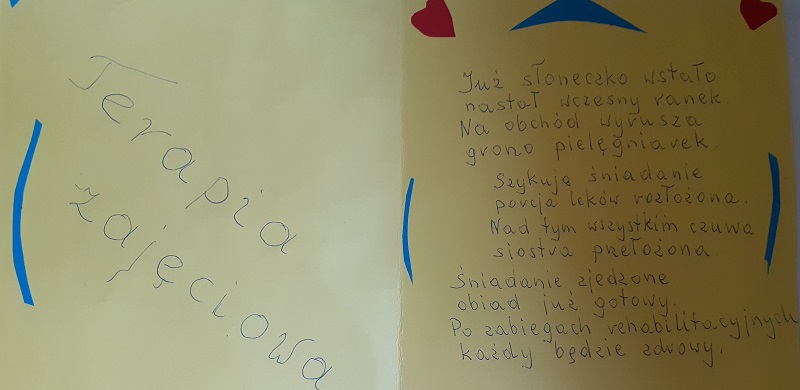 Terapia
zajęciowa
Już słoneczko wstało
nastał wczesny ranek
Na obchód wyrusza
grono pielęgniarek.
Szykują śniadanie
porcja leków rozłożona.
Nad tym wszystkim czuwa
siostra przełożona
Śniadanie zjedzone
obiad już gotowy.
Po zabiegach rehabilitacyjnych
każdy będzie zdrowy.